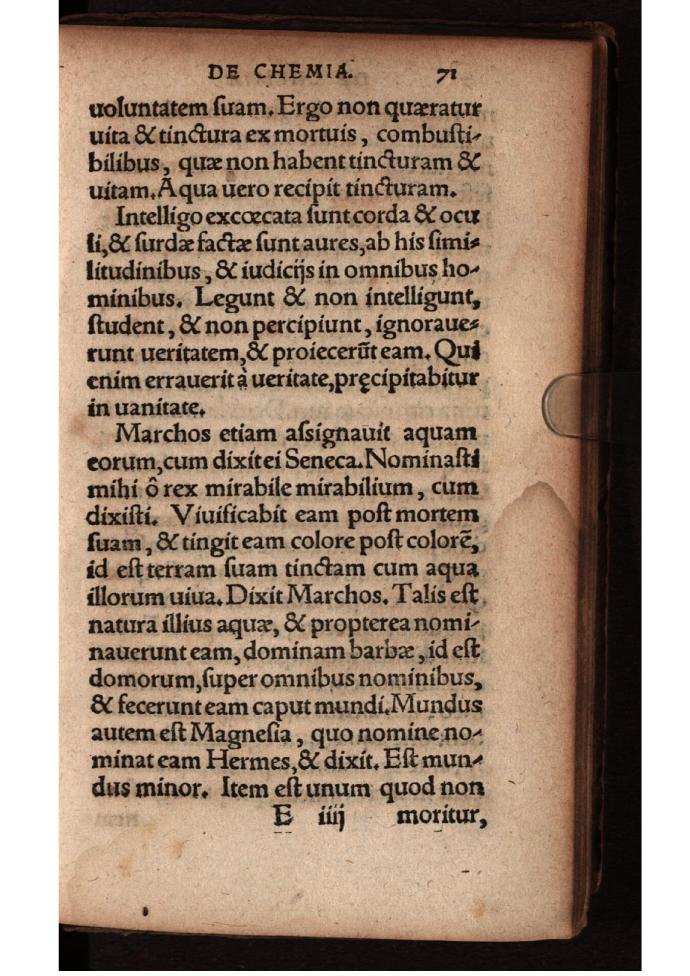 DE CHEMIA. 71
uoluntatem ſuam. Ergo non quæratur
uita & tinctura ex mortuis, combuſti-
bilibus, quæ non habent tincturam &
uitam. Aqua uero recipit tincturam.
Intelligo excœcata ſunt corda & ocu
li, & ſurdæ factæ ſunt aures, ab his ſimi-
litudinibus, & iudicijs in omnibus ho-
minibus. Legunt & non intelligunt,
ſtudent, & non percipiunt, ignoraue-
runt ueritatem, & proiecerūt eam. Qui
enim errauerit à ueritate, pręcipitabitur
in uanitate.
Marchos etiam aſsignauit aquam
eorum, cum dixit ei Seneca. Nominaſti
mihi ô rex mirabile mirabilium, cum
dixiſti. Viuificabit eam poſt mortem
ſuam, & tingit eam colore poſt colorē,
id eſt terram ſuam tinctam cum aqua
illorum uiua. Dixit Marchos. Talis eſt
natura illius aquæ, & propterea nomi-
nauerunt eam, dominam barbæ, id eſt
domorum, ſuper omnibus nominibus,
& fecerunt eam caput mundi. Mundus
autem eſt Magneſia, quo nomine no-
minat eam Hermes, & dixit. Eſt mun-
dus minor. Item eſt unum quod non
E iiij moritur,